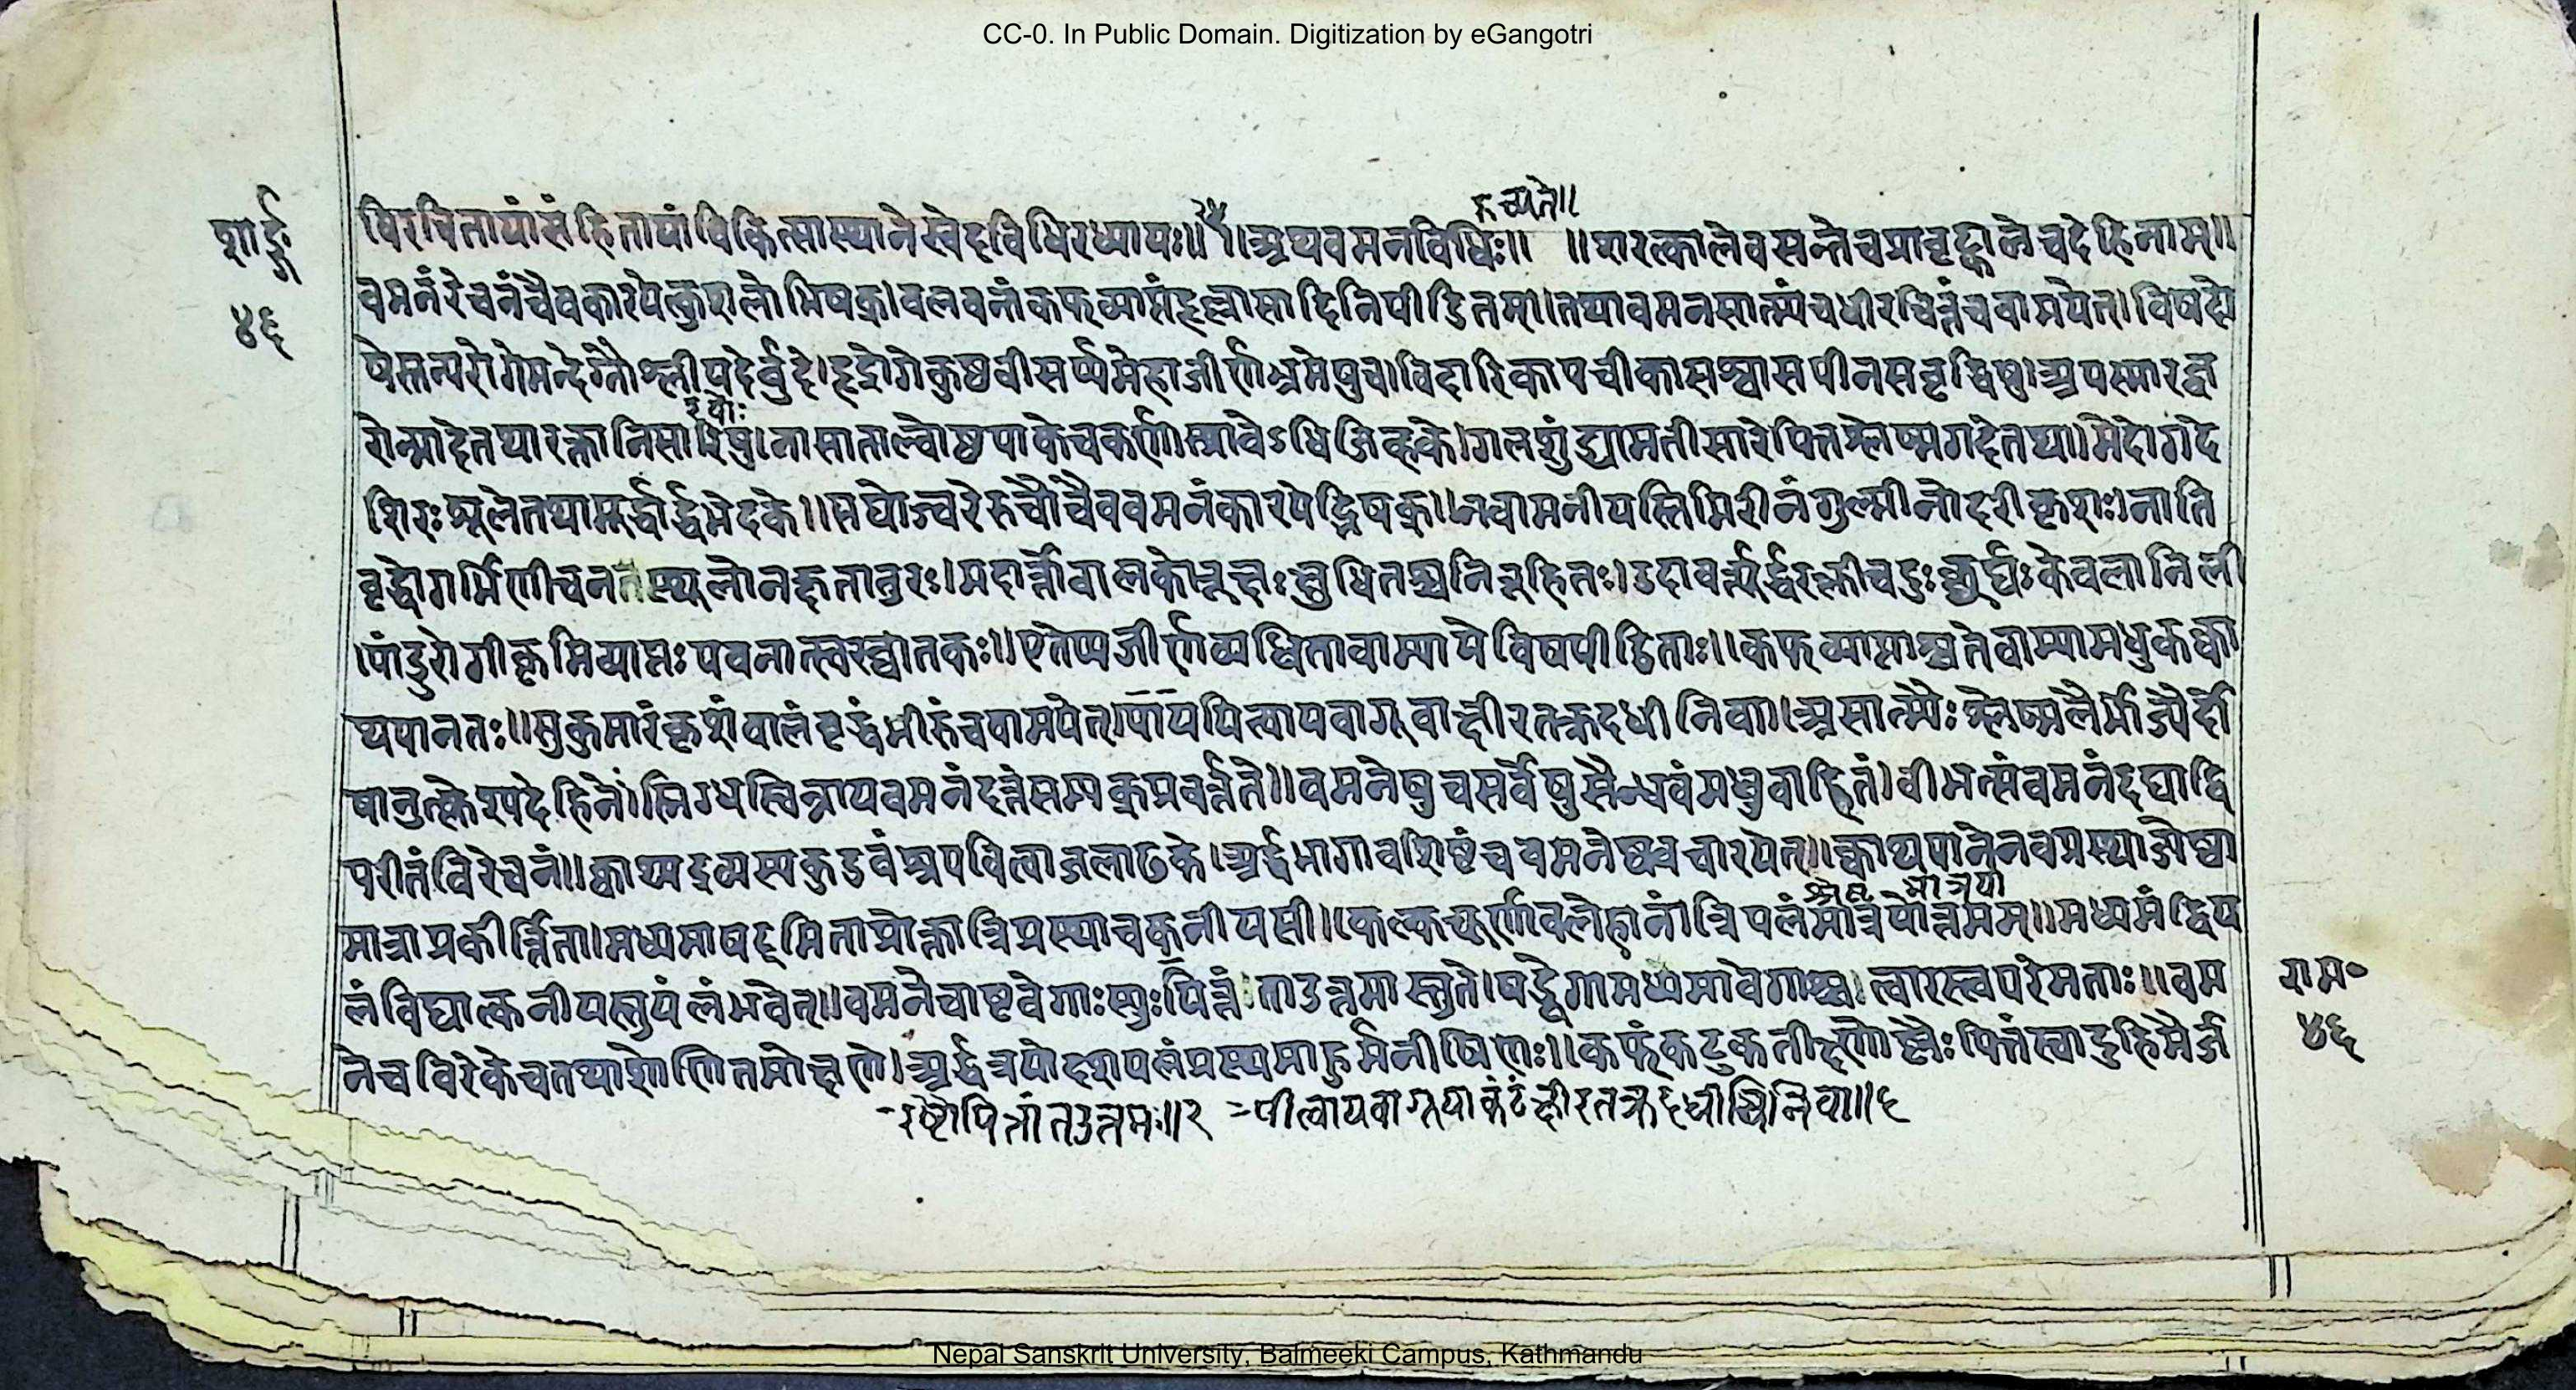 CC-0. In Public Domain. Digitization by eGangotri
रुच्यते॥
शार्ङ्ग
विरचितायांसंहितायांचिकित्सास्थानेस्वेदविधिरध्यायः॥ ॥अथवमनविधिः॥ ॥शरत्कालेवसन्तेचप्रावृट्कालेचदेहिनाम्॥
वमनंरेचनंचैवकारयेत्कुशलोभिषक्।वलवन्तंकफव्याप्तंहृल्लासादिनिपीडितम्।तथावमनसात्म्यंचधीरचित्तंचवामयेत्।विषदो
४६
षेस्तन्यरोगेमन्देग्नौश्लीपदेर्वुदे।हृद्रोगेकुष्ठवीसर्प्पमेहाजीर्णभ्रमेषुच।विदारिकापचीकासश्वासपीनसवृद्धिषु।अपस्मारज्व
रोन्मादेतथारक्तातिसारिषु।नासाताल्वोष्ठपाकेचकर्णस्रावेऽधिजिह्वके।गलशुंड्यामतीसारेपित्तश्लेष्मगदेतथा।मेदोगदे
शिरःशूलेतथामूर्द्धार्द्धभेदके॥सद्योज्वरेरुचौचैववमनंकारयेद्भिषक्॥नवामनीयस्तिमिरीनंगुल्मीनोदरीकृशः।नाति
वृद्धोगर्भिणीचनतस्थूलोनक्षतातुरः।मदार्त्तोवालकोरूक्षःक्षुधितश्चनिरूहितः।उदावर्त्यूर्द्धरक्तीचदुःछर्द्यःकेवलानिली
।पांडुरोगीकृमिव्याप्तःपवनात्स्वरघातकः॥एतेप्यजीर्णव्यथितावाम्यायेविषपीडिताः॥कफव्याप्ताश्चतेवाम्यामधुकक्वा
थपानतः॥सुकुमारंकृशंवालंवृद्धंभीरुंचवामयेत्।पाययित्वायवागूवाक्षीरतक्रदधीनिवा।असात्म्यैःश्लेष्मलैर्भोज्यैर्दो
षानुत्क्लेश्यदेहिनं।स्निग्धस्विन्नायवमनंदत्तंसम्यक्प्रवर्त्तते॥वमनेषुचसर्वेषुसैन्धवंमधुवाहितं।वीभत्संवमनंदद्याद्वि
परीतंविरेचनं॥क्वाथ्यद्रव्यस्यकुडवंश्रपयित्वाजलाढके।अर्द्धभागावशिष्टंचवमनेष्ववचारयेत्॥क्वाथपानेनवप्रस्थाज्येष्ठा
मात्राप्रकीर्त्तिता।मध्यमाषट्मिताप्रोक्तात्रिप्रस्थाचकनीयसी।कल्कचूर्णावलेहानांत्रिपलंमात्रयोत्तमम्॥मध्यमंद्विप
लंविद्यात्कनीयस्तुपलंभवेत्॥वमनेचाष्टवेगाःस्युःपित्तंताउत्तमास्तुते।षड्वेगामध्यमावेगाश्चत्वारस्त्वपरेमताः॥वम
राम॰
नेचविरेकेचतथाशोणितमोक्षणे।अर्द्धत्रयोदशपलंप्रस्थमाहुर्मनीषिणः॥कफंकटुकतीक्ष्णोष्णैःपित्तंस्वादुहिमैर्ज
४६
पीत्वायवागूपाकंठंक्षीरतक्रदधीनिवा॥६
Nepal Sanskrit University, Balmeeki Campus, Kathmandu